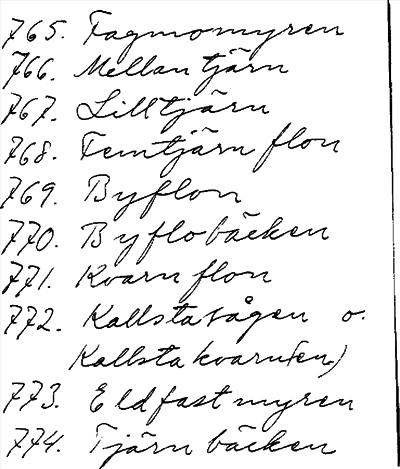 765. Fagmomyren
766. Mellantjärn
767. Lilltjärn
768. Femtjärnflon
769. Byflon
770. Byflobäcken
771. Kvarnflon
772. Kallstasågen o.
Kallstakvarn(en)
773. Eldfastmyren
774. Tjärnbäcken